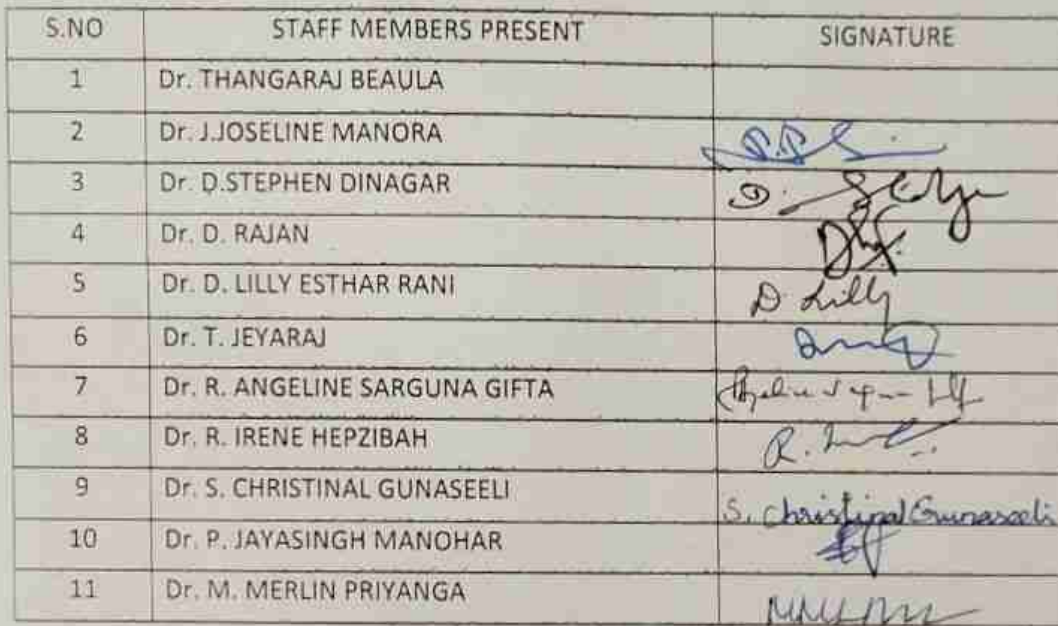 S.NO STAFF MEMBERS PRESENT SIGNATURE
1 Dr. THANGARAJ BEAULA
2 Dr. J.JOSELINE MANORA
3 Dr. D.STEPHEN DINAGAR
4 Dr. D. RAJAN
5 Dr. D. LILLY ESTHAR RANI D Lilly
6 Dr. T. JEYARAJ
7 Dr. R. ANGELINE SARGUNA GIFTA
8 Dr. R. IRENE HEPZIBAH
9 Dr. S. CHRISTINAL GUNASEELI S. Christinal Gunaseeli
10 Dr. P. JAYASINGH MANOHAR
11 Dr. M. MERLIN PRIYANGA